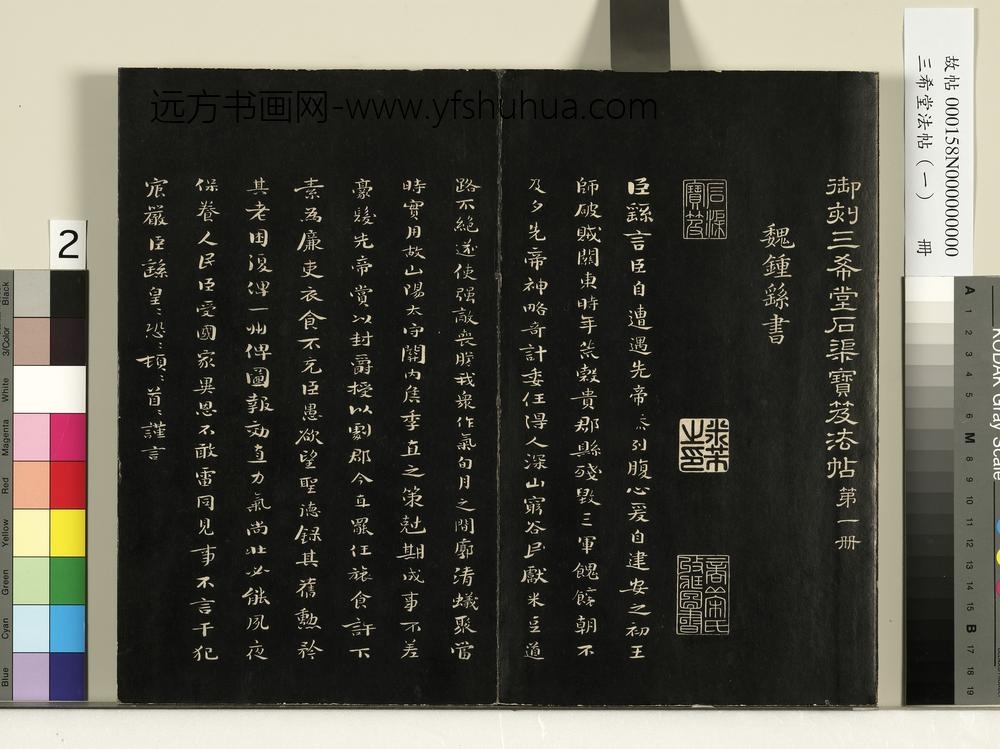 御刻三希堂石渠寶笈法帖第一冊
魏鍾繇書
臣繇言臣自遭遇先帝忝列腹心爰自建安之初王
師破賊關東時年荒穀貴郡縣殘毀三軍餽饟朝不
及夕先帝神略奇計委任得人深山窮谷民獻米豆道
路不絕遂使强敵喪膽我衆作氣旬月之間廓清蟻聚當
時實用故山陽太守關內侯季直之策剋期成事不差
豪髮先帝賞以封爵授以劇郡今直罷任旅食許下
素為廉吏衣食不充臣愚欲望聖德録其舊勲矜
其老困復俾一州俾圖報効直力氣尚壯必能夙夜
保養人民臣受國家異恩不敢雷同見事不言干犯
宸嚴臣繇皇〻恐〻頓〻首〻謹言
石渠寶笈
米芾之印
远方书画网-www.yfshuhua.com
故帖 000158N000000000
三希堂法帖（一） 冊
2
Black
3/Color
White
Magenta
Red
Yellow
Green
Cyan
Blue
KODAK Gray Scale
A 1 2 3 4 5 6 M 8 9 10 11 12 13 14 15 B 17 18 19